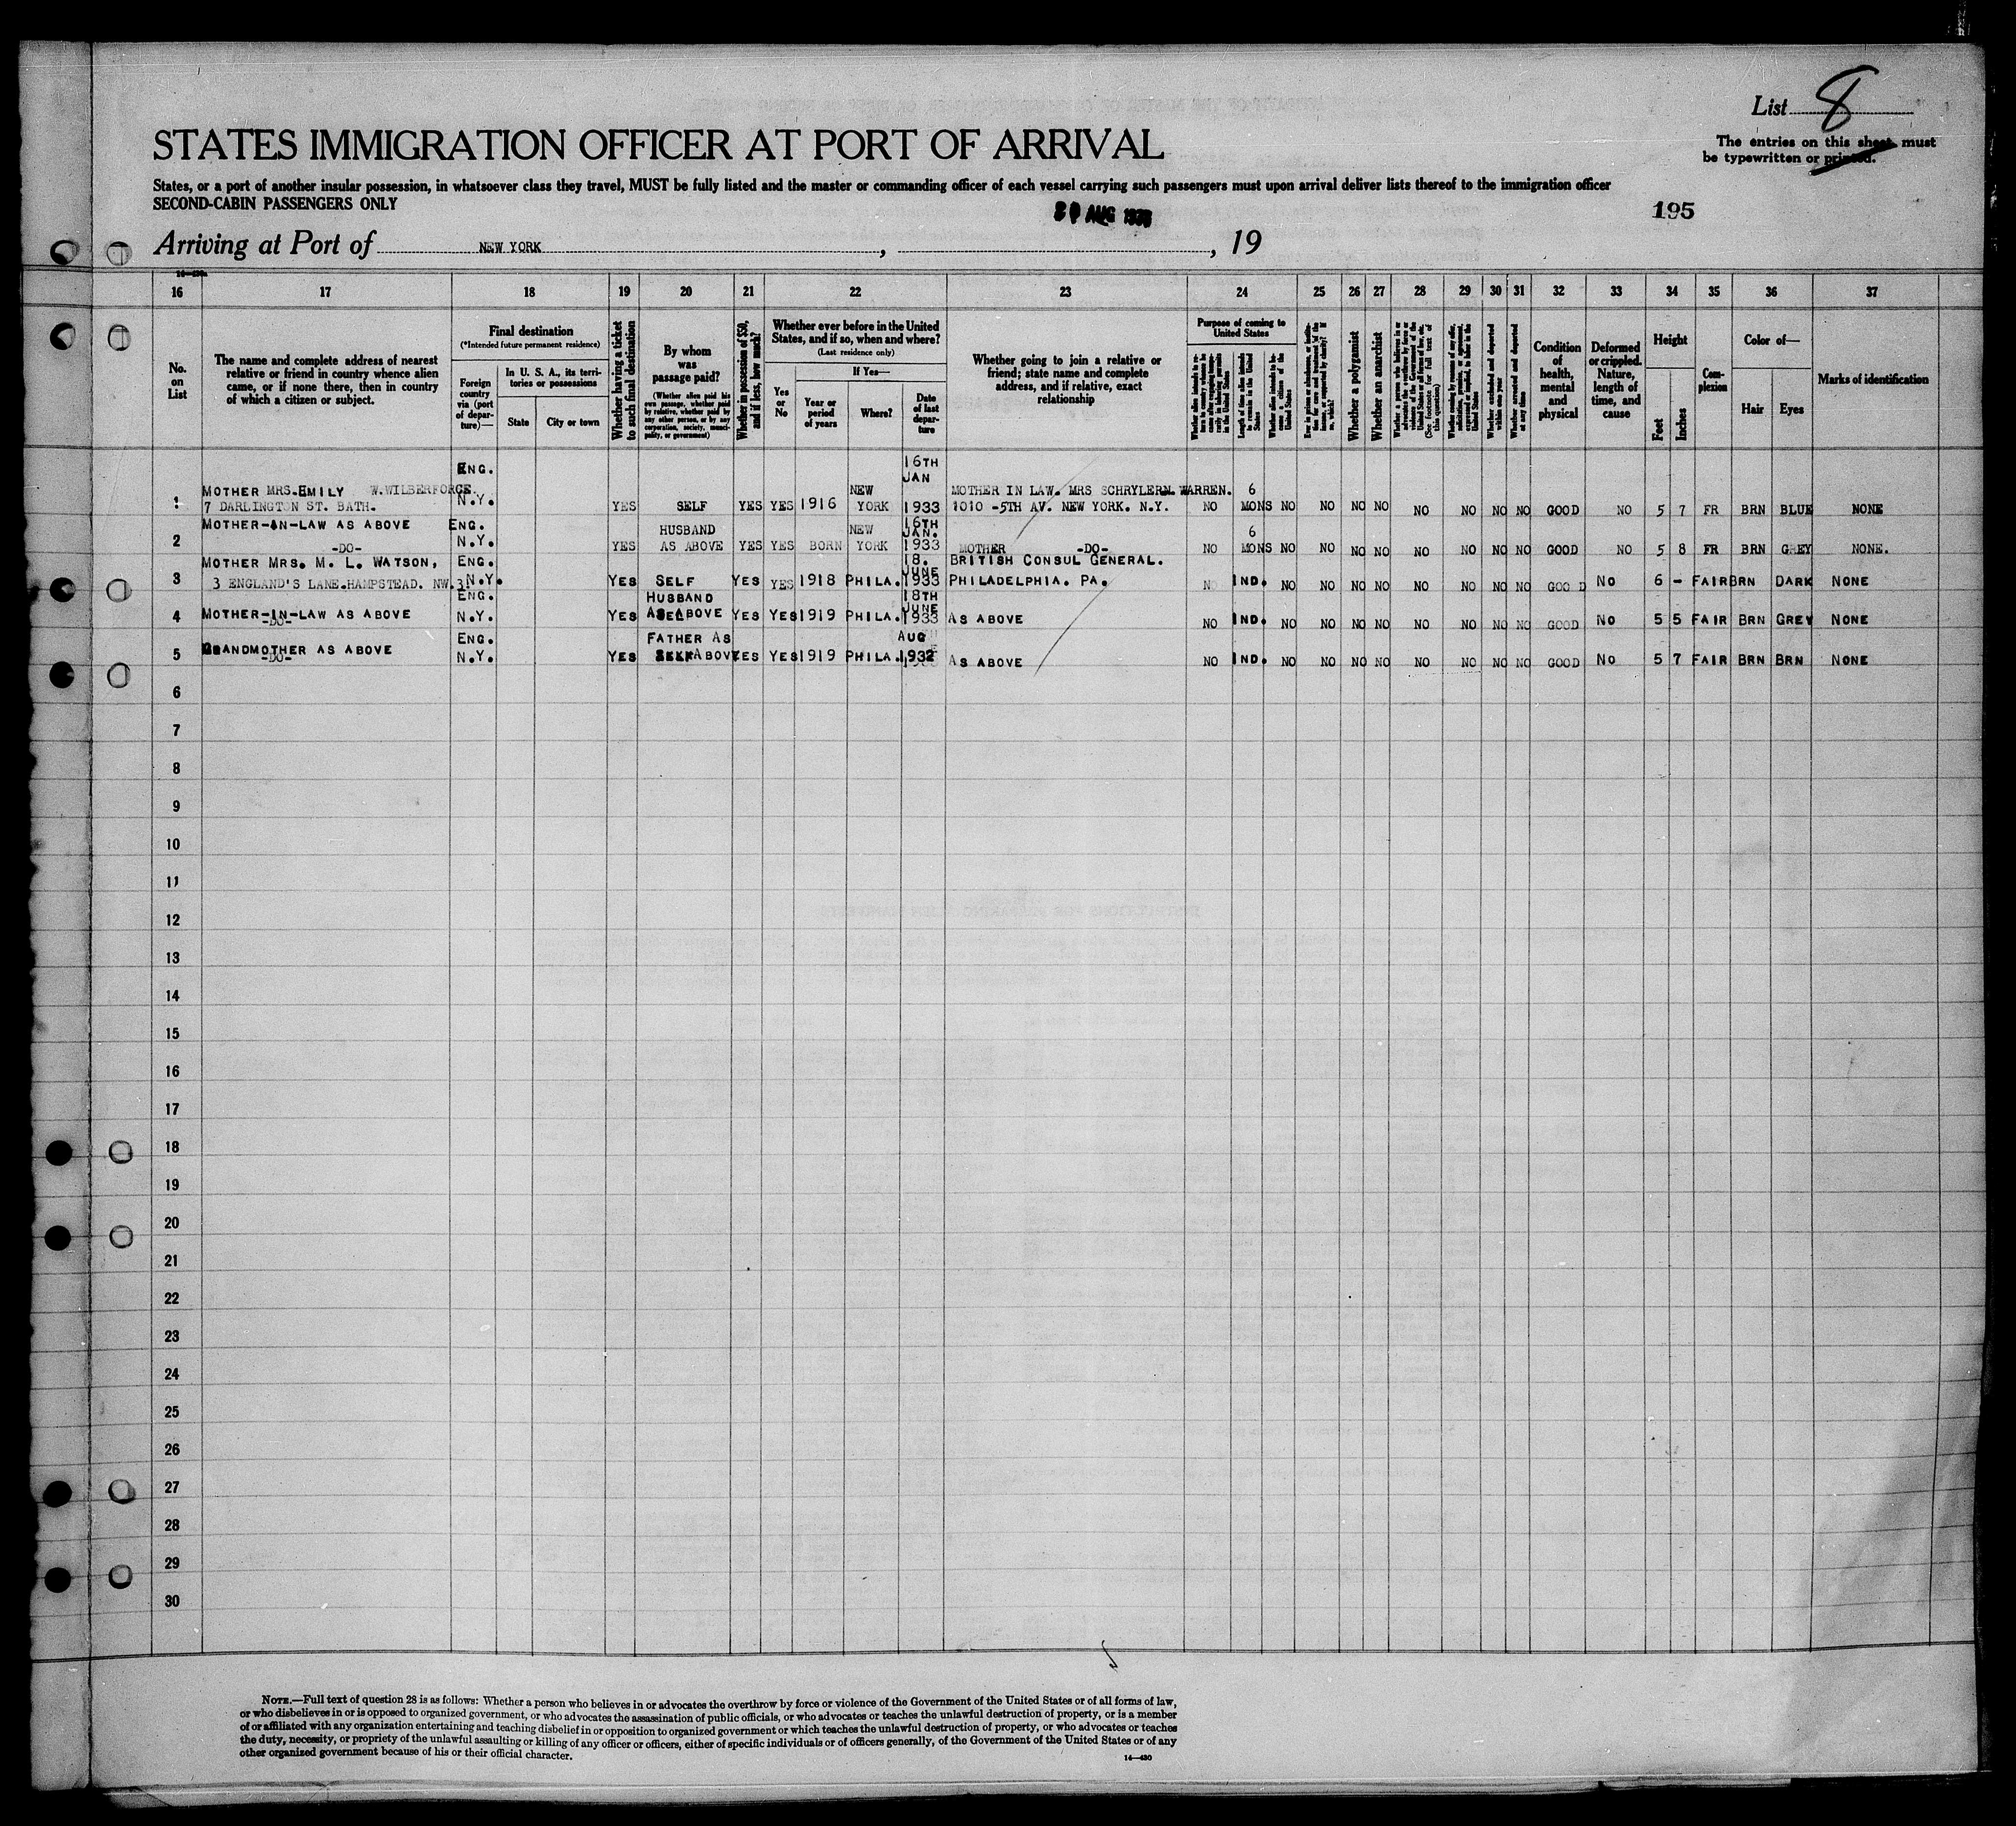 List 8
The entries on this sheet must
be typewritten or printed.
STATES IMMIGRATION OFFICER AT PORT OF ARRIVAL
States, or a port of another insular possession, in whatsoever class they travel, MUST be fully listed and the master or commanding officer of each vessel carrying such passengers must upon arrival deliver lists thereof to the immigration officer
SECOND-CABIN PASSENGERS ONLY
195
AUG
Arriving at Port of NEW YORK , , 19
16 17 18 19 20 21 22 23 24 25 26 27 28 29 30 31 32 33 34 35 36 37
No. on List
The name and complete address of nearest relative or friend in country whence alien came, or if none there, then in country of which a citizen or subject.
Final destination
(*Intended future permanent residence)
Foreign country via (port of departure)—
In U. S. A., its territories or possessions
State
City or town
Whether having a ticket to such final destination
By whom was passage paid?
(Whether alien paid his own passage, whether paid by relative, whether paid by any other person, or by any corporation, society, municipality, or government)
Whether in possession of $50, and if less, how much?
Whether ever before in the United States, and if so, when and where?
(Last residence only)
Yes or No
If Yes—
Year or period of years
Where?
Date of last departure
Whether going to join a relative or friend; state name and complete address, and if relative, exact relationship
Purpose of coming to United States
Length of time alien intends to remain in the United States
Whether alien intends to become a citizen of the United States
Whether a polygamist
Whether an anarchist
Condition of health, mental and physical
Deformed or crippled. Nature, length of time, and cause
Height
Feet
Inches
Complexion
Color of—
Hair
Eyes
Marks of identification
ENG.
16TH
JAN
MOTHER MRS.EMILY W.WILBERFORCE. N.Y. NEW MOTHER IN LAW. MRS SCHRYLERN. WARREN. 6
1 7 DARLINGTON ST. BATH. YES SELF YES YES 1916 YORK 1933 1010 -5TH AV. NEW YORK. N.Y. NO MONS NO NO NO NO NO NO NO NO GOOD NO 5 7 FR BRN BLUE NONE
MOTHER-IN-LAW AS ABOVE ENG. HUSBAND NEW 16TH JAN. 6
2 -DO- N.Y. YES AS ABOVE YES YES BORN YORK 1933 MOTHER -DO- NO MONS NO NO NO NO NO NO NO NO GOOD NO 5 8 FR BRN GREY NONE.
MOTHER MRS. M. L. WATSON, ENG. 18. JUNE BRITISH CONSUL GENERAL.
3 3 ENGLAND'S LANE.HAMPSTEAD. NW.3. N.Y. YES SELF YES YES 1918 PHILA. 1933 PHILADELPHIA. PA. NO IND. NO NO NO NO NO NO NO NO GOOD NO 6 - FAIR BRN DARK NONE
ENG. HUSBAND 18TH JUNE
4 MOTHER-IN-LAW AS ABOVE N.Y. YES AS ABOVE YES YES 1919 PHILA. 1933 AS ABOVE NO IND. NO NO NO NO NO NO NO NO GOOD NO 5 5 FAIR BRN GREY NONE
-DO-
ENG. FATHER AS AUG
5 GRANDMOTHER AS ABOVE N.Y. YES ABOVE YES YES 1919 PHILA. 1932 AS ABOVE NO IND. NO NO NO NO NO NO NO NO GOOD NO 5 7 FAIR BRN BRN NONE
-DO-
6
7
8
9
10
11
12
13
14
15
16
17
18
19
20
21
22
23
24
25
26
27
28
29
30
NOTE.—Full text of question 28 is as follows: Whether a person who believes in or advocates the overthrow by force or violence of the Government of the United States or of all forms of law,
or who disbelieves in or is opposed to organized government, or who advocates the assassination of public officials, or who advocates or teaches the unlawful destruction of property, or is a member
of or affiliated with any organization entertaining and teaching disbelief in or opposition to organized government or which teaches the unlawful destruction of property, or who advocates or teaches
the duty, necessity, or propriety of the unlawful assaulting or killing of any officer or officers, either of specific individuals or of officers generally, of the Government of the United States or of any
other organized government because of his or their official character.
14—430